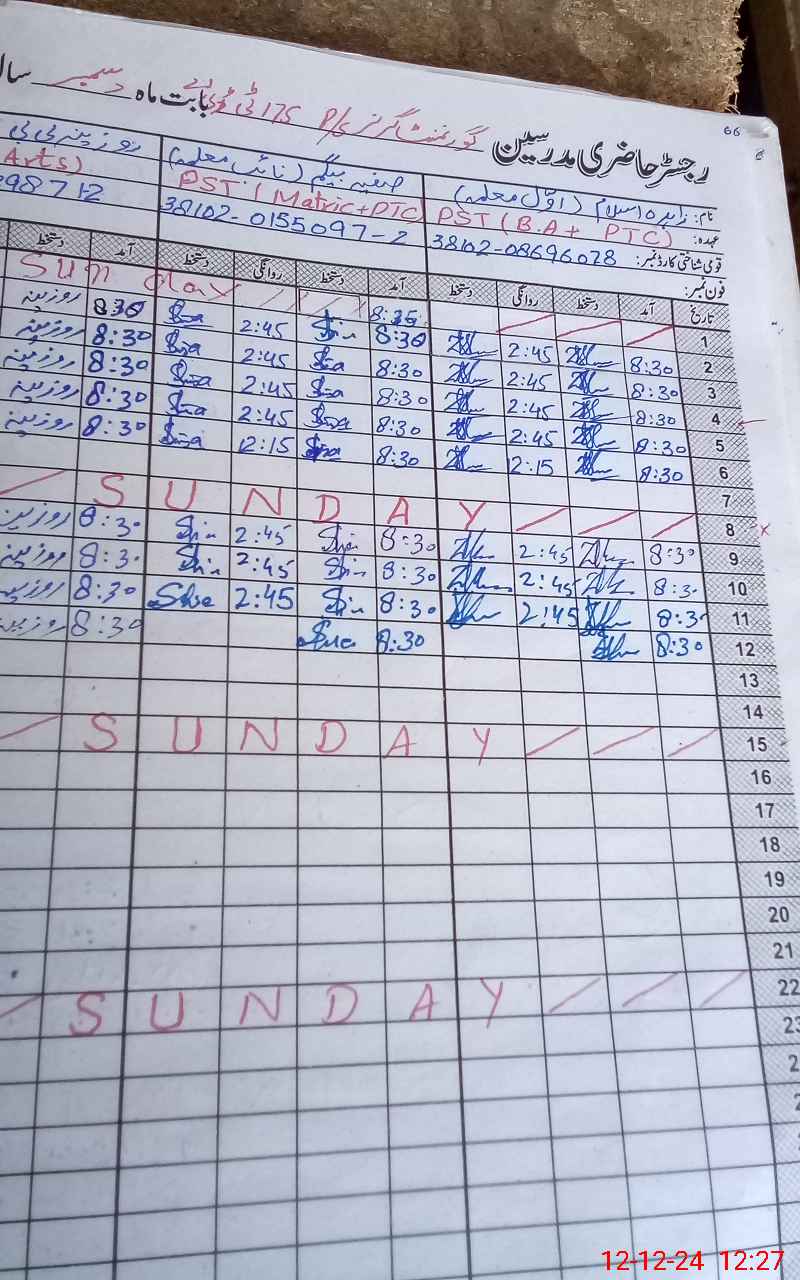 66
رجسٹر حاضری مدرسین گورنمنٹ گرلز P/S 175 ٹی ڈی اے بابت ماہ دسمبر سال
نام: زاہدہ اسلام (اول معلمہ) صفیہ بیگم (نائب معلمہ) روزینہ بی بی
عہدہ: PST (B.A + PTC) PST (Matric+PTC) Arts)
قومی شناختی کارڈ نمبر: 38102-08696078 38102-0155097-2 98712
فون نمبر:
تاریخ آمد دستخط روانگی دستخط آمد دستخط روانگی دستخط آمد دستخط
1 8:35 Sunday
2 8:30 2:45 8:30 2:45 830 روزینہ
3 8:30 2:45 8:30 2:45 8:30 روزینہ
4 8:30 2:45 8:30 2:45 8:30 روزینہ
5 8:30 2:45 8:30 2:45 8:30 روزینہ
6 8:30 12:15 8:30 12:15 8:30 روزینہ
7
8 SUNDAY
9 8:30 2:45 8:30 2:45 8:30 روزینہ
10 8:30 2:45 8:30 2:45 8:30 روزینہ
11 8:30 2:45 8:30 2:45 8:30 روزینہ
12 8:30 8:30 8:30 روزینہ
13
14
15 SUNDAY
16
17
18
19
20
21
22 SUNDAY
23
2
2
12-12-24 12:27